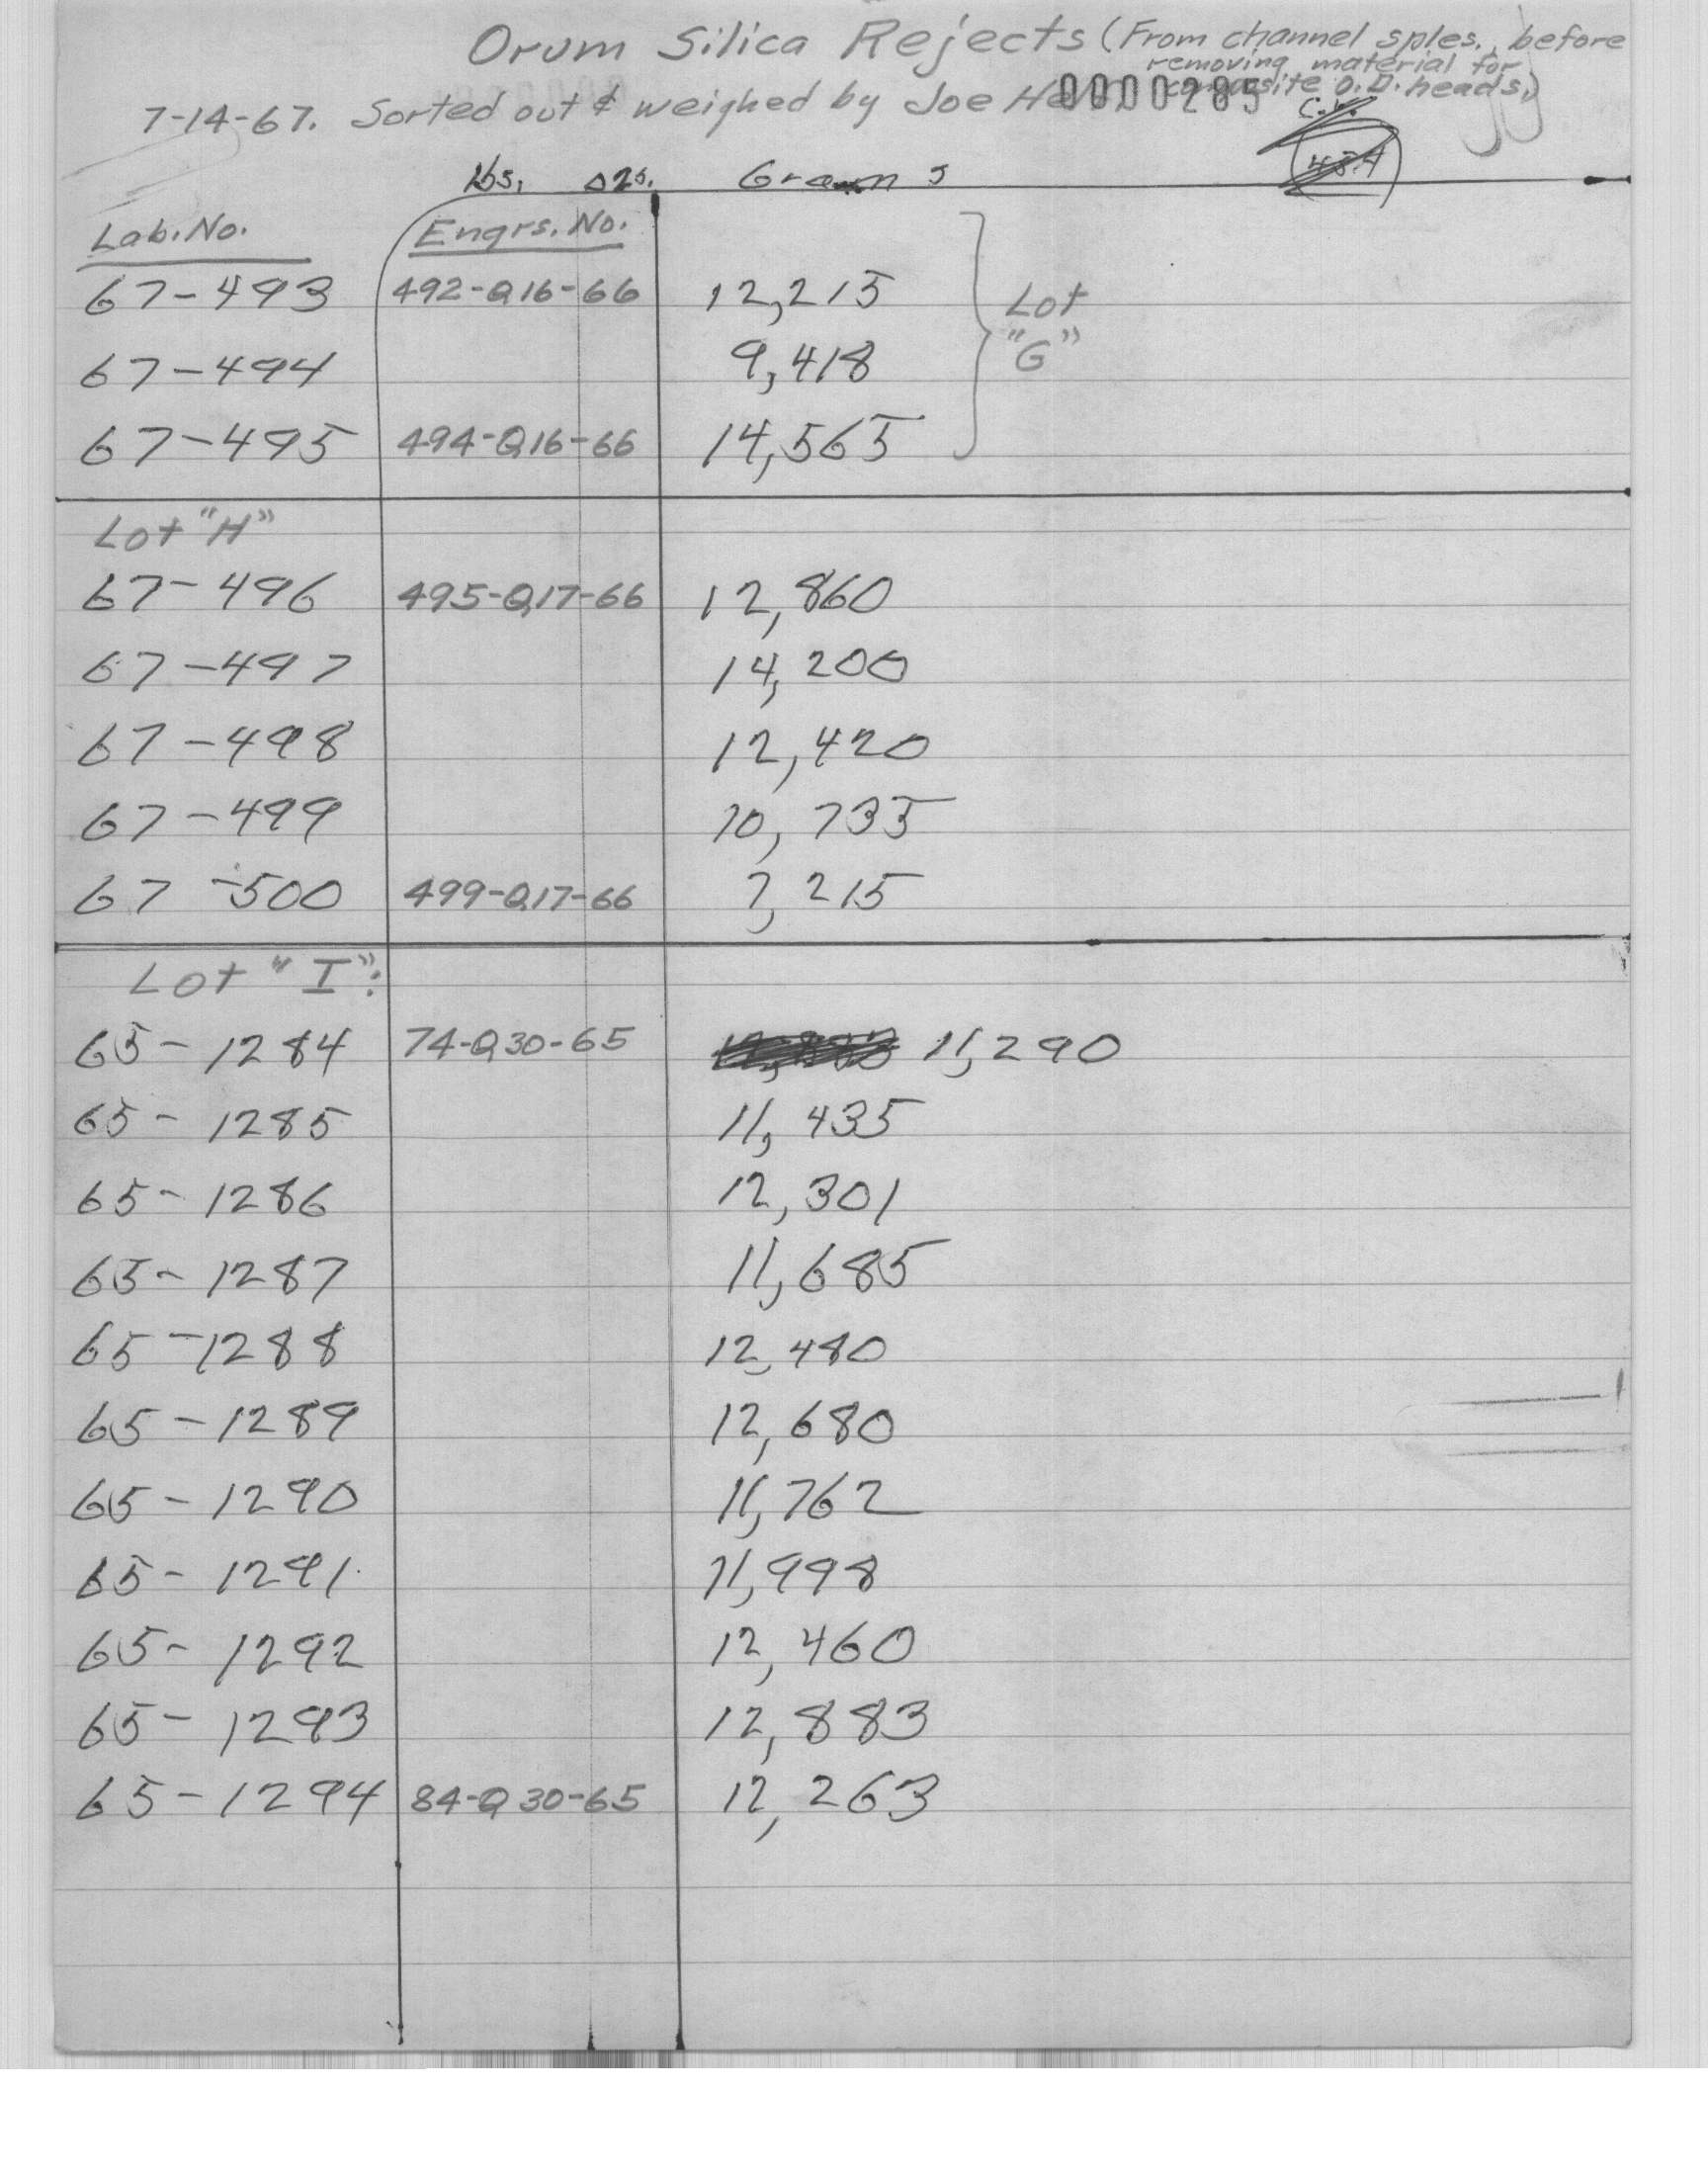 Orum Silica Rejects (From channel sples., before
removing material for
composite O.D. heads.)
7-14-67. Sorted out & weighed by Joe
0000285
C.V.
lbs. ozs. Grams
Lab. No. Engrs. No.
67-493 492-Q16-66 12,215
Lot
"G"
67-494 9,418
67-495 494-Q16-66 14,565
Lot "H"
67-496 495-Q17-66 12,860
67-497 14,200
67-498 12,420
67-499 10,735
67-500 499-Q17-66 7,215
Lot "I":
65-1284 74-Q30-65 11,290
65-1285 11,435
65-1286 12,301
65-1287 11,685
65-1288 12,480
65-1289 12,680
65-1290 11,762
65-1291 11,998
65-1292 12,460
65-1293 12,883
65-1294 84-Q30-65 12,263